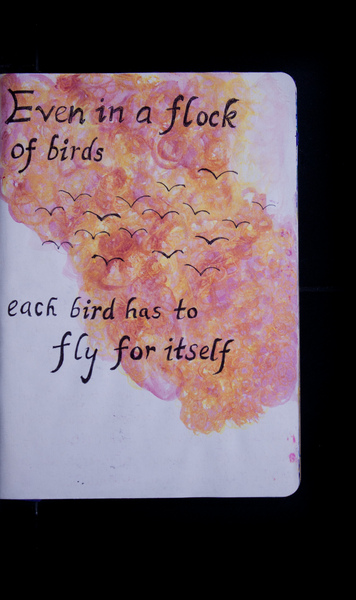 Even in a flock
of birds
each bird has to
fly for itself